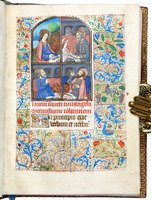 Inicium sancti euangelii
secundum iohannem
In principio erat
verbum et verbu